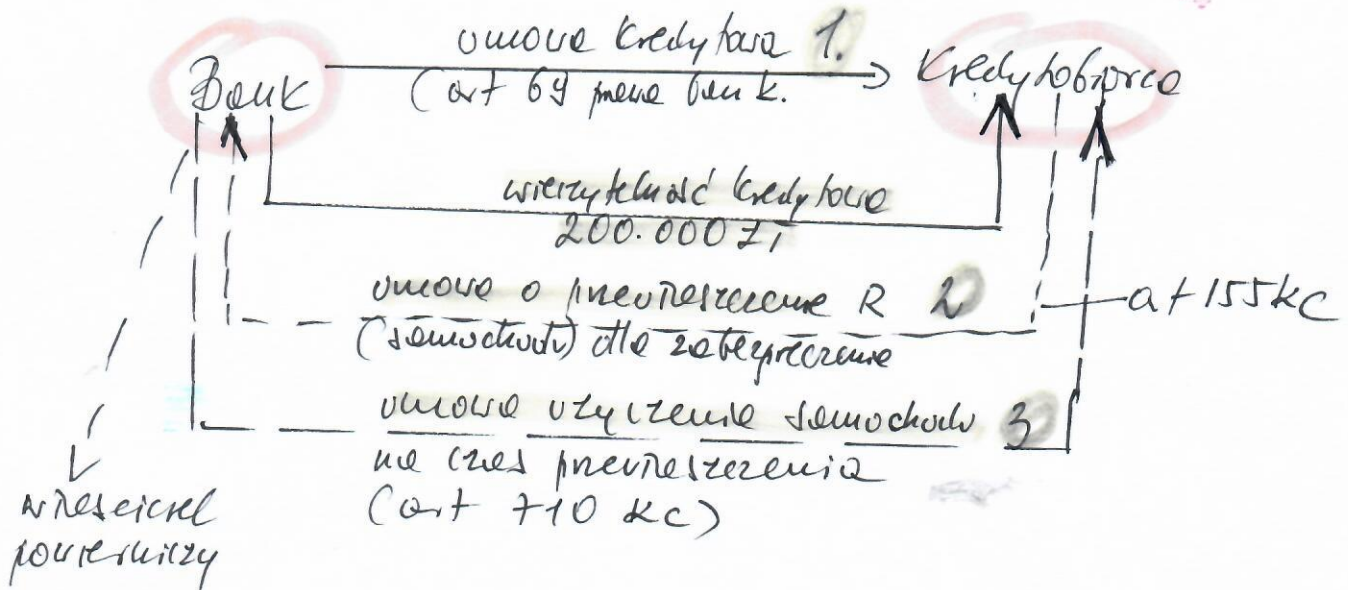 umowa kredytowa 1.
Bank
(art 69 prawa bank.
Kredytobiorca
wierzytelność kredytowa
200.000 zł
umowa o przewłaszczenie R 2
art 155 kc
(samochodu) dla zabezpieczenia
umowa użyczenia samochodu 3
na czas przewłaszczenia
(art 710 kc)
właściciel
powierniczy